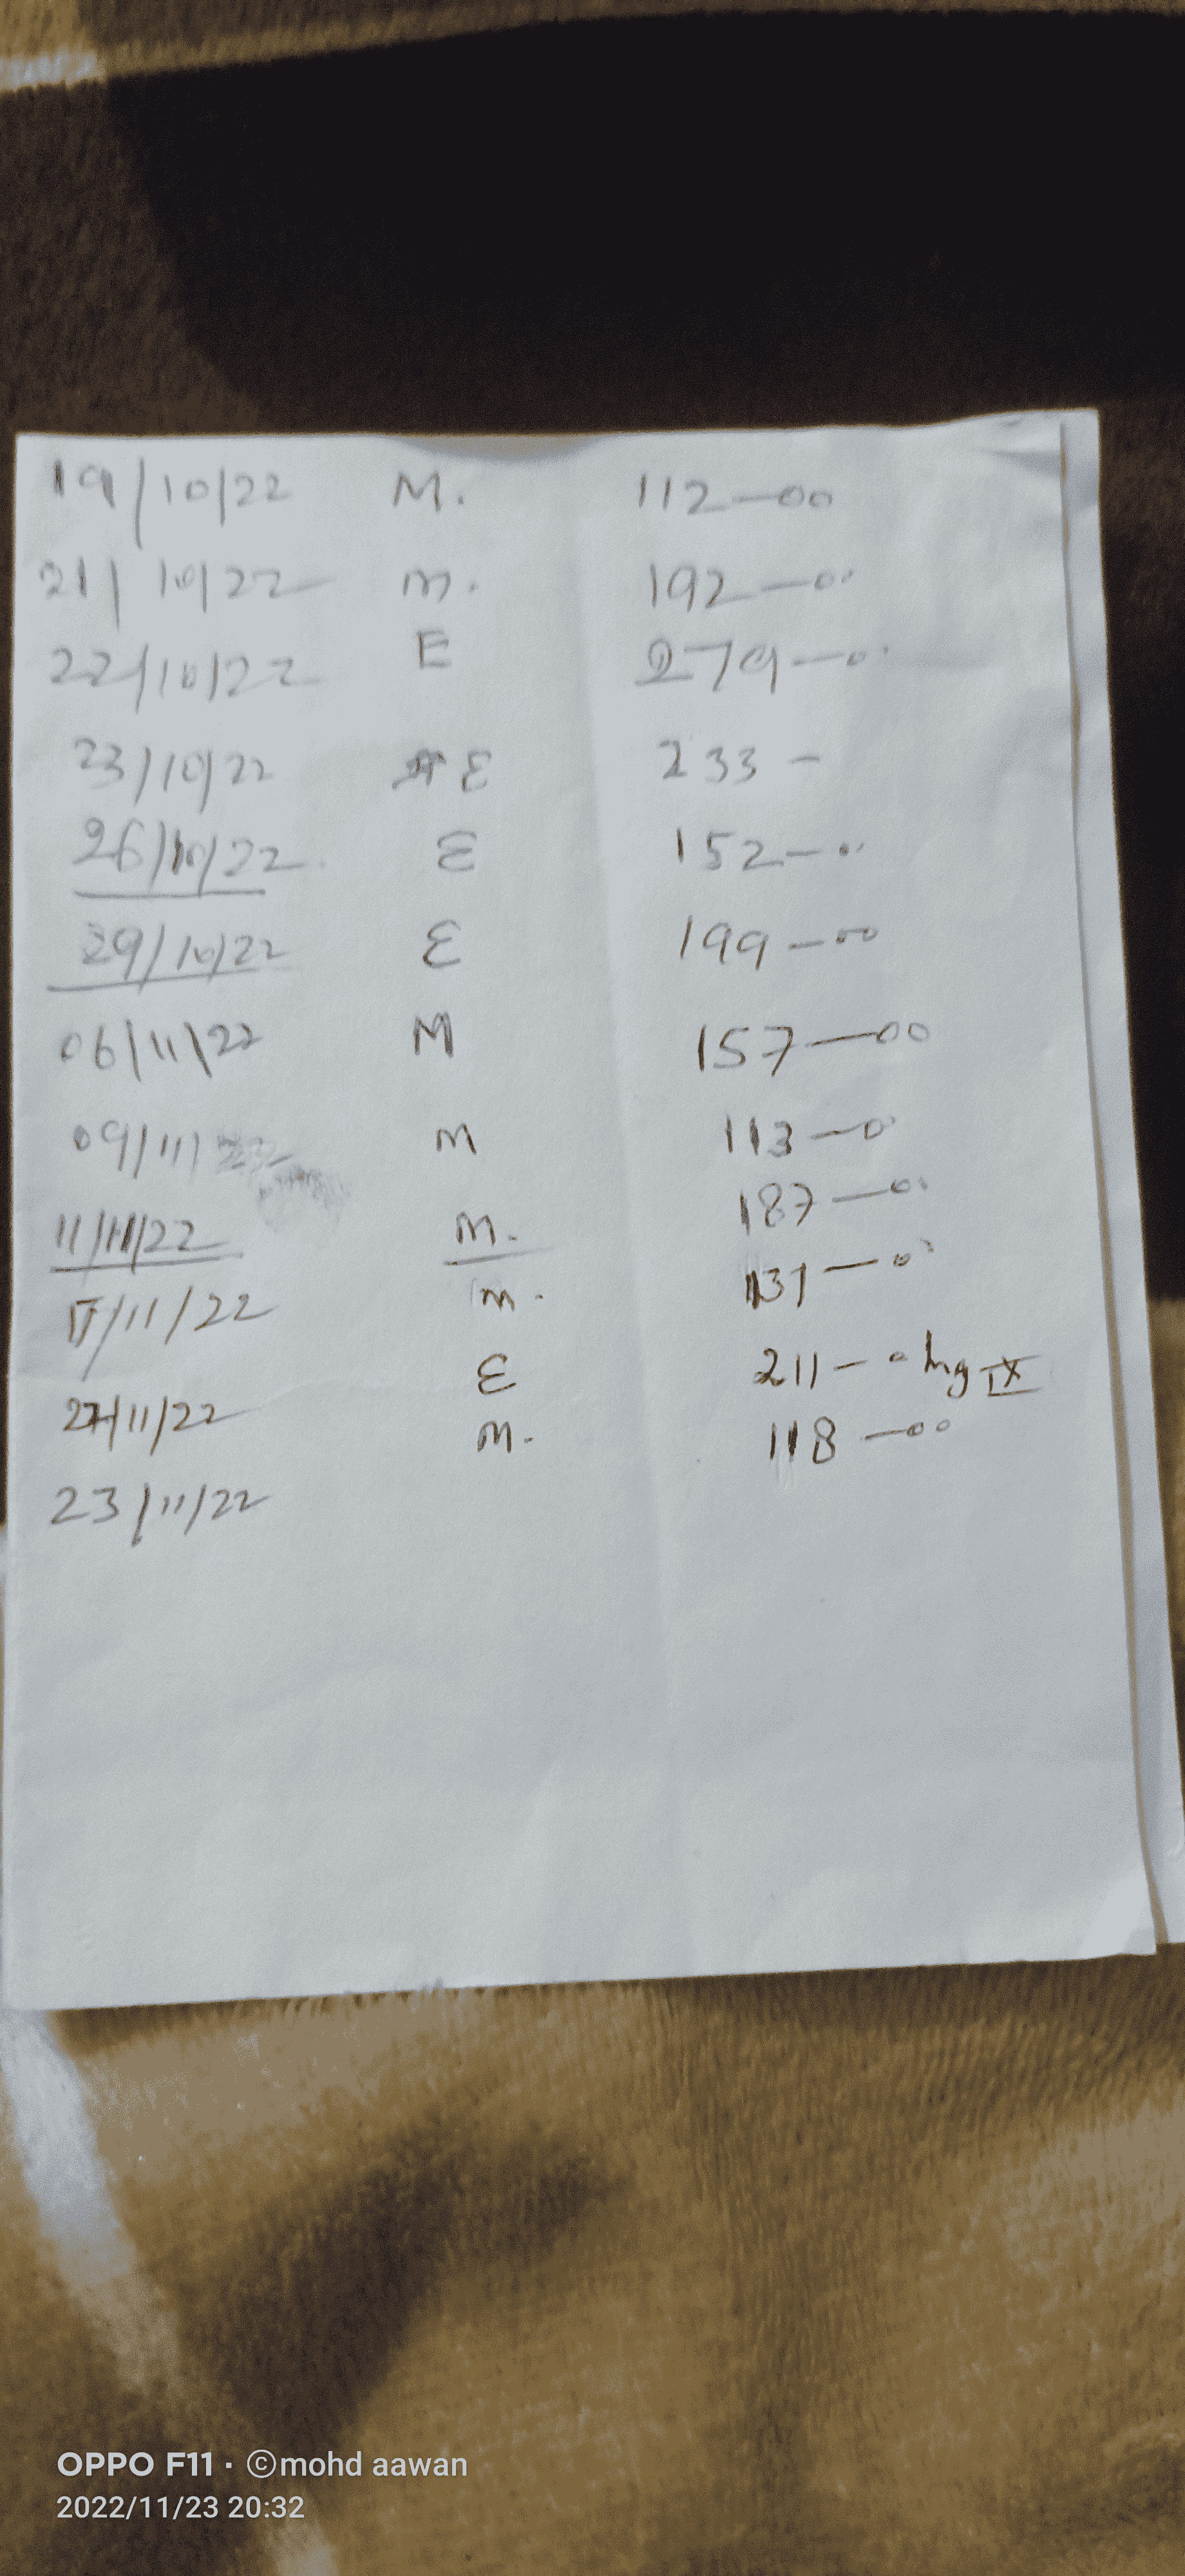 19/10/22 M. 112-00
21/10/22 m. 192-00
22/10/22 E 279-00
23/10/22 E 233-
26/10/22 E 152-00
29/10/22 E 199-00
06/11/22 M 157-00
09/11/22 M 113-0
11/11/22 M. 187-00
/11/22 m. 131-00
/11/22 E 211-0
23/11/22 M. 118-00
OPPO F11 · ©mohd aawan
2022/11/23 20:32